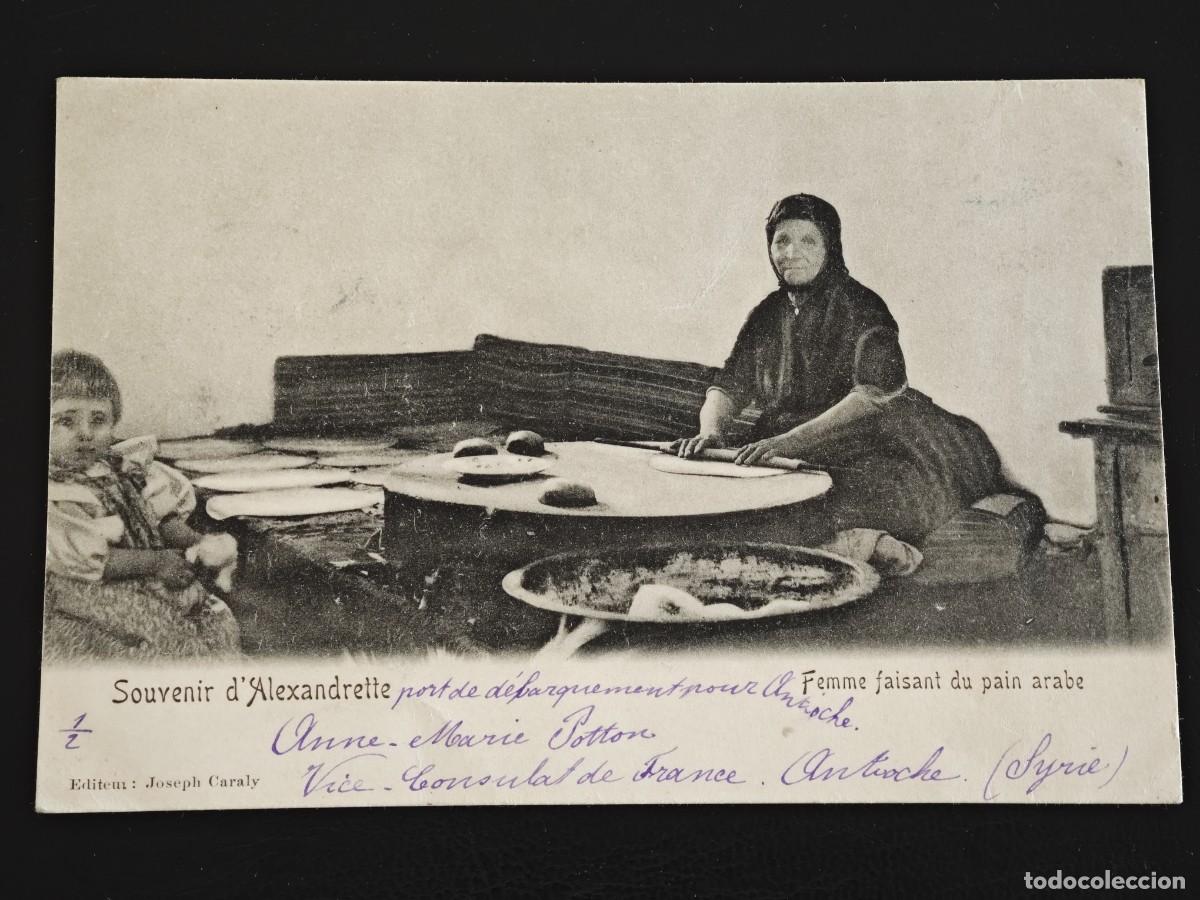 Souvenir d'Alexandrette port de débarquement pour Antioche.
Femme faisant du pain arabe
1/2
Anne-Marie Potton
Vice-Consulat de France. Antioche. (Syrie)
Editeur: Joseph Caraly
todocoleccion